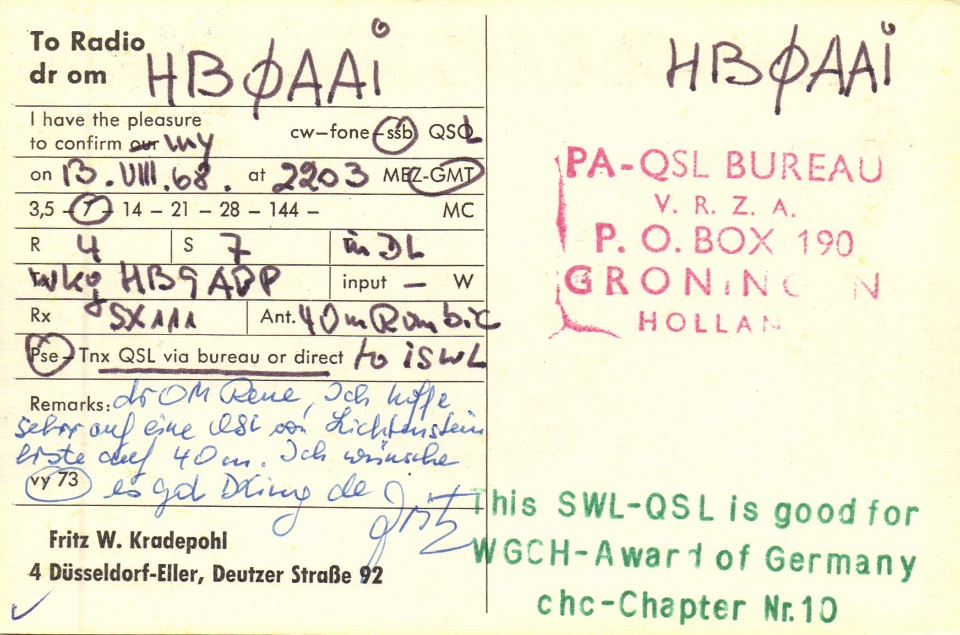 To Radio
dr om HBØAAi
I have the pleasure
to confirm our my cw–fone–ssb QSL
on 13. VIII. 68. at 2203 MEZ-GMT
3,5 – 7 – 14 – 21 – 28 – 144 – MC
R 4 S 7 in DL
wkg HB9ADP input — W
Rx SX111 Ant. 40m Rombic
Pse – Tnx QSL via bureau or direct to iSWL
Remarks: dr OM Rene, Ich hoffe
sehr auf eine QSL von Lichtenstein
erste auf 40 m. Ich wünsche
vy 73 es gd DXing de Fritz
Fritz W. Kradepohl
4 Düsseldorf-Eller, Deutzer Straße 92
HBØAAi
PA-QSL BUREAU
V. R. Z. A.
P. O. BOX 190
GRONINGEN
HOLLAN
This SWL-QSL is good for
WGCH-Award of Germany
chc-Chapter Nr.10